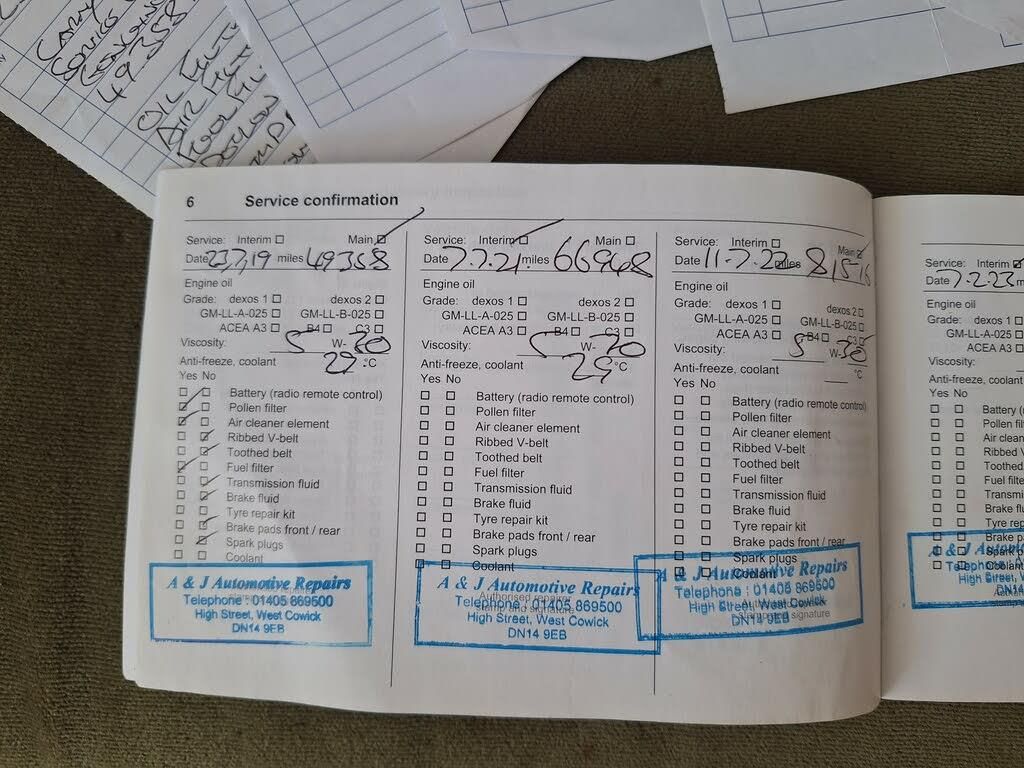 49358
OIL
AIR
6 Service confirmation
Service: Interim Main
Date 23,7,19 miles 49358
Engine oil
Grade: dexos 1 dexos 2
GM-LL-A-025 GM-LL-B-025
ACEA A3 B4 C3
Viscosity: 5 W- 30
Anti-freeze, coolant 29 °C
Yes No
Battery (radio remote control)
Pollen filter
Air cleaner element
Ribbed V-belt
Toothed belt
Fuel filter
Transmission fluid
Brake fluid
Tyre repair kit
Brake pads front / rear
Spark plugs
Coolant
A & J Automotive Repairs
Telephone : 01405 869500
High Street, West Cowick
DN14 9EB
Service: Interim Main
Date 7.7.21. miles 66948
Engine oil
Grade: dexos 1 dexos 2
GM-LL-A-025 GM-LL-B-025
ACEA A3 B4 C3
Viscosity: 5 W- 30
Anti-freeze, coolant 29 °C
Yes No
Battery (radio remote control)
Pollen filter
Air cleaner element
Ribbed V-belt
Toothed belt
Fuel filter
Transmission fluid
Brake fluid
Tyre repair kit
Brake pads front / rear
Spark plugs
Coolant
Authorised repairer
stamp and signature
A & J Automotive Repairs
Telephone : 01405 869500
High Street, West Cowick
DN14 9EB
Service: Interim Main
Date 11-7.22 miles 815-16
Engine oil
Grade: dexos 1 dexos 2
GM-LL-A-025 GM-LL-B-025
ACEA A3 B4 C3
Viscosity: 5 W- 30
Anti-freeze, coolant °C
Yes No
Battery (radio remote control)
Pollen filter
Air cleaner element
Ribbed V-belt
Toothed belt
Fuel filter
Transmission fluid
Brake fluid
Tyre repair kit
Brake pads front / rear
Spark plugs
Coolant
stamp and signature
A & J Automotive Repairs
Telephone : 01405 869500
High Street, West Cowick
DN14 9EB
Service: Interim
Date 7.2.23 m
Engine oil
Grade: dexos 1
GM-LL-A-025
ACEA A3
Viscosity:
Anti-freeze, coolant
Yes No
Battery (
Pollen fil
Air clean
Ribbed
Toothed
Fuel filte
Transmis
Brake flu
Tyre repa
Brake pa
Spark p
Coolant
A & J Autom
Telephone
High Str
DN14